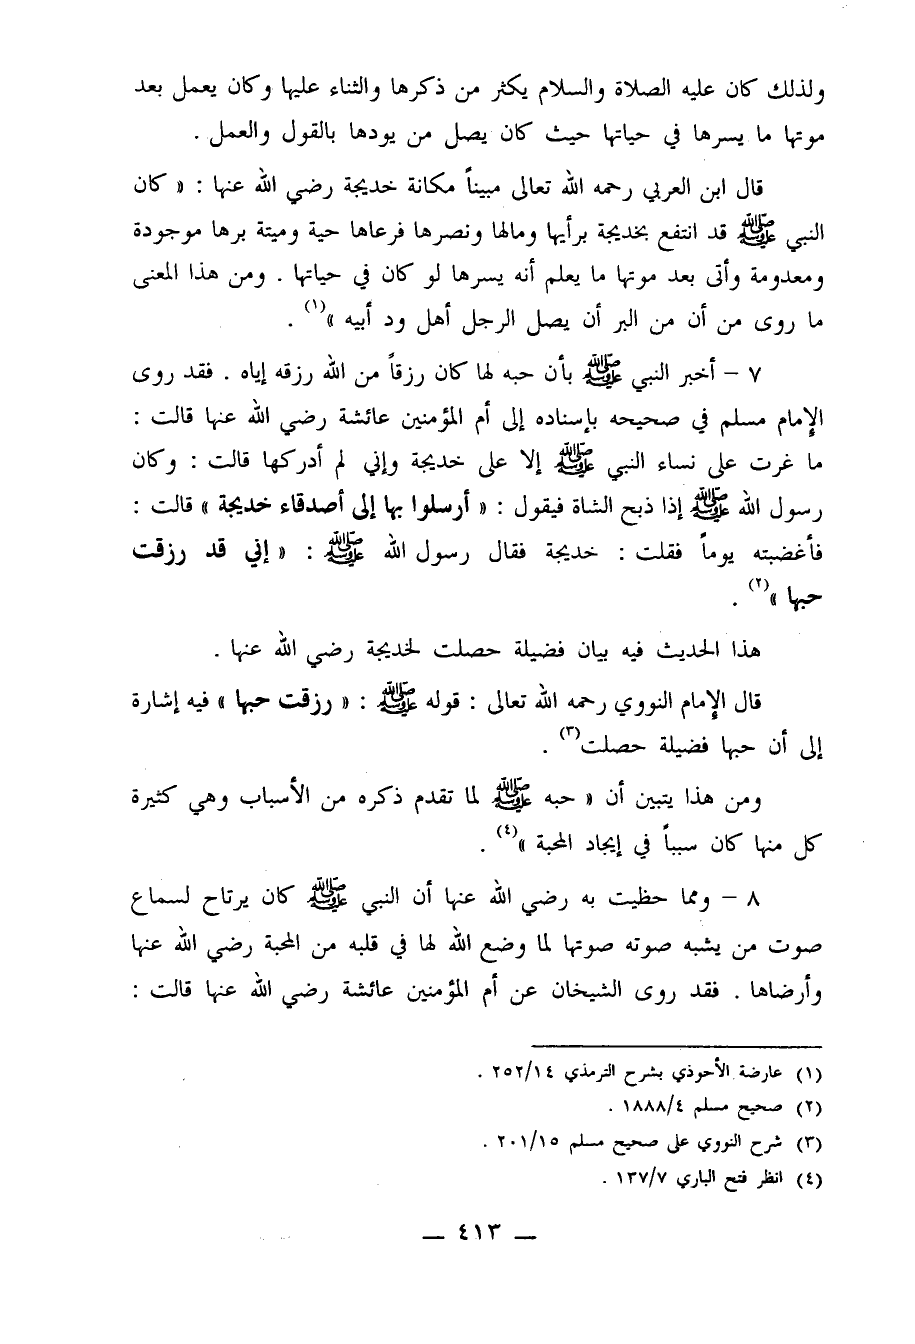 ولذلك كان عليه الصلاة والسلام يكثر من ذكرها والثناء عليها وكان يعمل بعد
موتها ما يسرها في حياتها حيث كان يصل من يودها بالقول والعمل .
قال ابن العربي رحمه الله تعالى مبيناً مكانة خديجة رضي الله عنها : « كان
النبي ﷺ قد انتفع بخديجة برأيها ومالها ونصرها فرعاها حية وميتة برها موجودة
ومعدومة وأتى بعد موتها ما يعلم أنه يسرها لو كان في حياتها . ومن هذا المعنى
ما روى من أن من البر أن يصل الرجل أهل ود أبيه »(١) .
٧ – أخبر النبي ﷺ بأن حبه لها كان رزقاً من الله رزقه إياه . فقد روى
الإمام مسلم في صحيحه بإسناده إلى أم المؤمنين عائشة رضي الله عنها قالت :
ما غرت على نساء النبي ﷺ إلا على خديجة وإني لم أدركها قالت : وكان
رسول الله ﷺ إذا ذبح الشاة فيقول : « أرسلوا بها إلى أصدقاء خديجة » قالت :
فأغضبته يوماً فقلت : خديجة فقال رسول الله ﷺ : « إني قد رزقت
حبها »(٢) .
هذا الحديث فيه بيان فضيلة حصلت لخديجة رضي الله عنها .
قال الإمام النووي رحمه الله تعالى : قوله ﷺ : « رزقت حبها » فيه إشارة
إلى أن حبها فضيلة حصلت(٣) .
ومن هذا يتبين أن « حبه ﷺ لما تقدم ذكره من الأسباب وهي كثيرة
كل منها كان سبباً في إيجاد المحبة »(٤) .
٨ – ومما حظيت به رضي الله عنها أن النبي ﷺ كان يرتاح لسماع
صوت من يشبه صوته صوتها لما وضع الله لها في قلبه من المحبة رضي الله عنها
وأرضاها . فقد روى الشيخان عن أم المؤمنين عائشة رضي الله عنها قالت :
(١) عارضة الأحوذي بشرح الترمذي ٢٥٢/١٤ .
(٢) صحيح مسلم ١٨٨٨/٤ .
(٣) شرح النووي على صحيح مسلم ٢٠١/١٥ .
(٤) انظر فتح الباري ١٣٧/٧ .
— ٤١٣ —